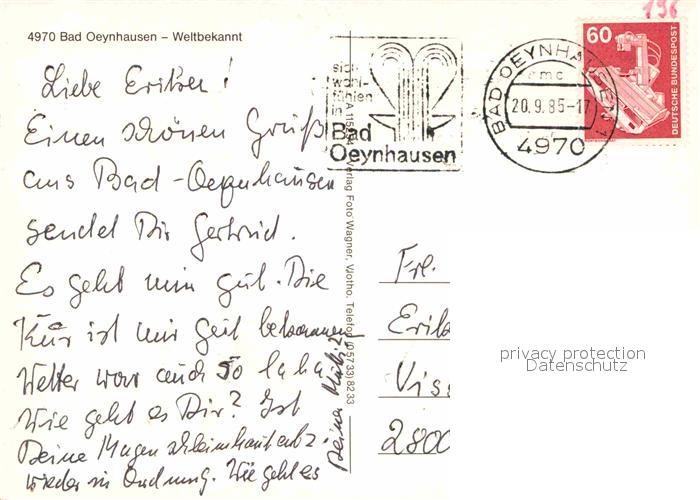 4970 Bad Oeynhausen – Weltbekannt
196
Liebe Erika!
Einen schönen Gruß
aus Bad-Oeynhausen
sendet Dir Gertrud.
Es geht mir gut. Die
Kur ist mir gut bekommen
Wetter war auch so
Wie geht es Dir? Ist
Deine Magenschleimhautentz.
wieder in Ordnung. Wie geht es
Deiner
sich
wohl-
fühlen
in
Bad
Oeynhausen
BAD OEYNHAUSEN 1
mc
20.9.85-17
4970
60
DEUTSCHE BUNDESPOST
Verlag Foto Wagner, Vlotho, Telefon (05733) 8233
Frl.
Erik
Vis
2800
privacy protection
Datenschutz